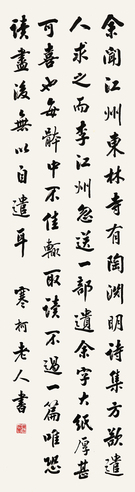 余聞江州東林寺有陶淵明詩集方欲遣
人求之而李江州忽送一部遺余字大紙厚甚
可喜也每體中不佳輒取讀不過一篇唯恐
讀盡後無以自遣耳 寒柯老人書